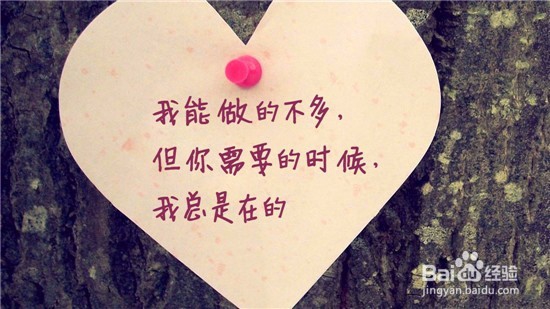 我能做的不多,
但你需要的时候,
我总是在的
Baidu经验
jingyan.baidu.com